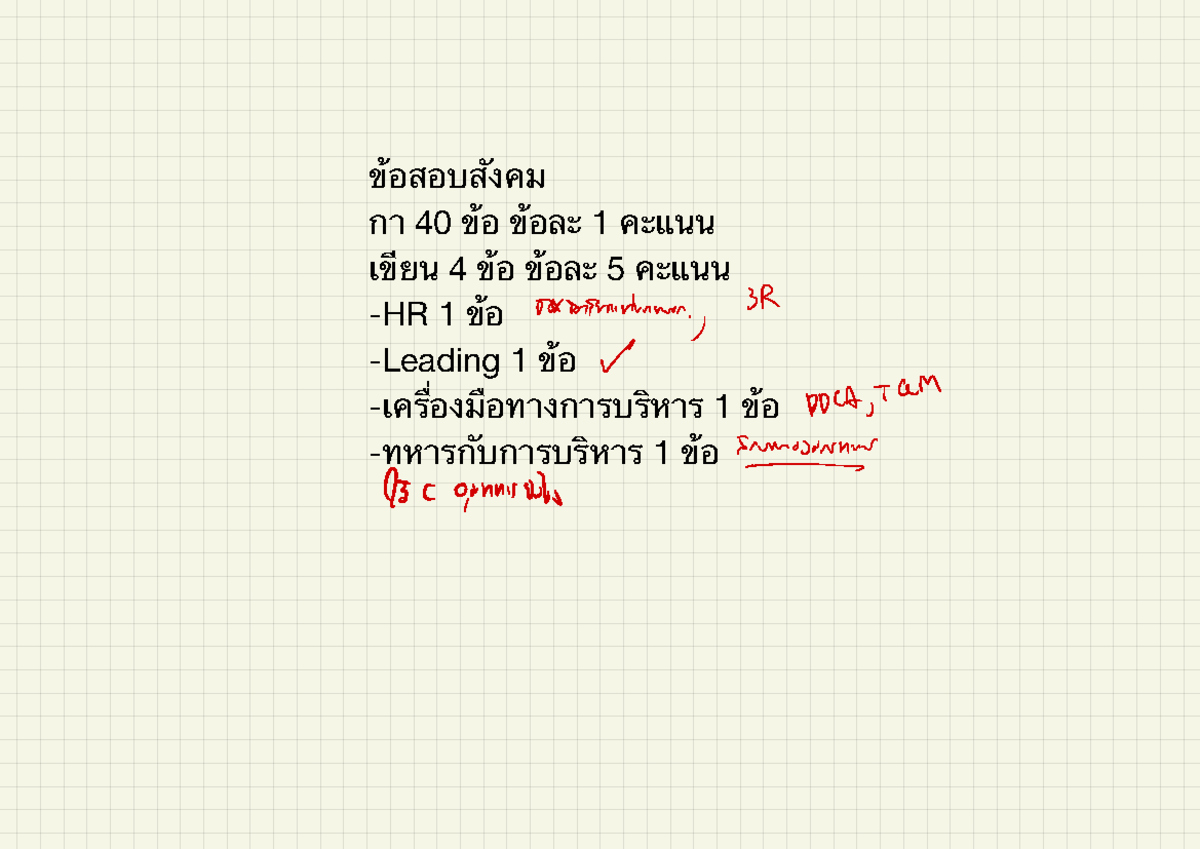 ข้อสอบสังคม
กา 40 ข้อ ข้อละ 1 คะแนน
เขียน 4 ข้อ ข้อละ 5 คะแนน
-HR 1 ข้อ 3R
-Leading 1 ข้อ ✓
-เครื่องมือทางการบริหาร 1 ข้อ PDCA, TQM
-ทหารกับการบริหาร 1 ข้อ